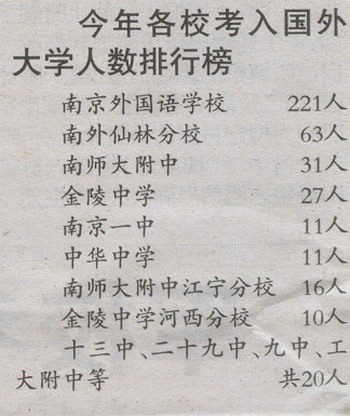 今年各校考入国外
大学人数排行榜
南京外国语学校 221人
南外仙林分校 63人
南师大附中 31人
金陵中学 27人
南京一中 11人
中华中学 11人
南师大附中江宁分校 16人
金陵中学河西分校 10人
十三中、二十九中、九中、工
大附中等 共20人